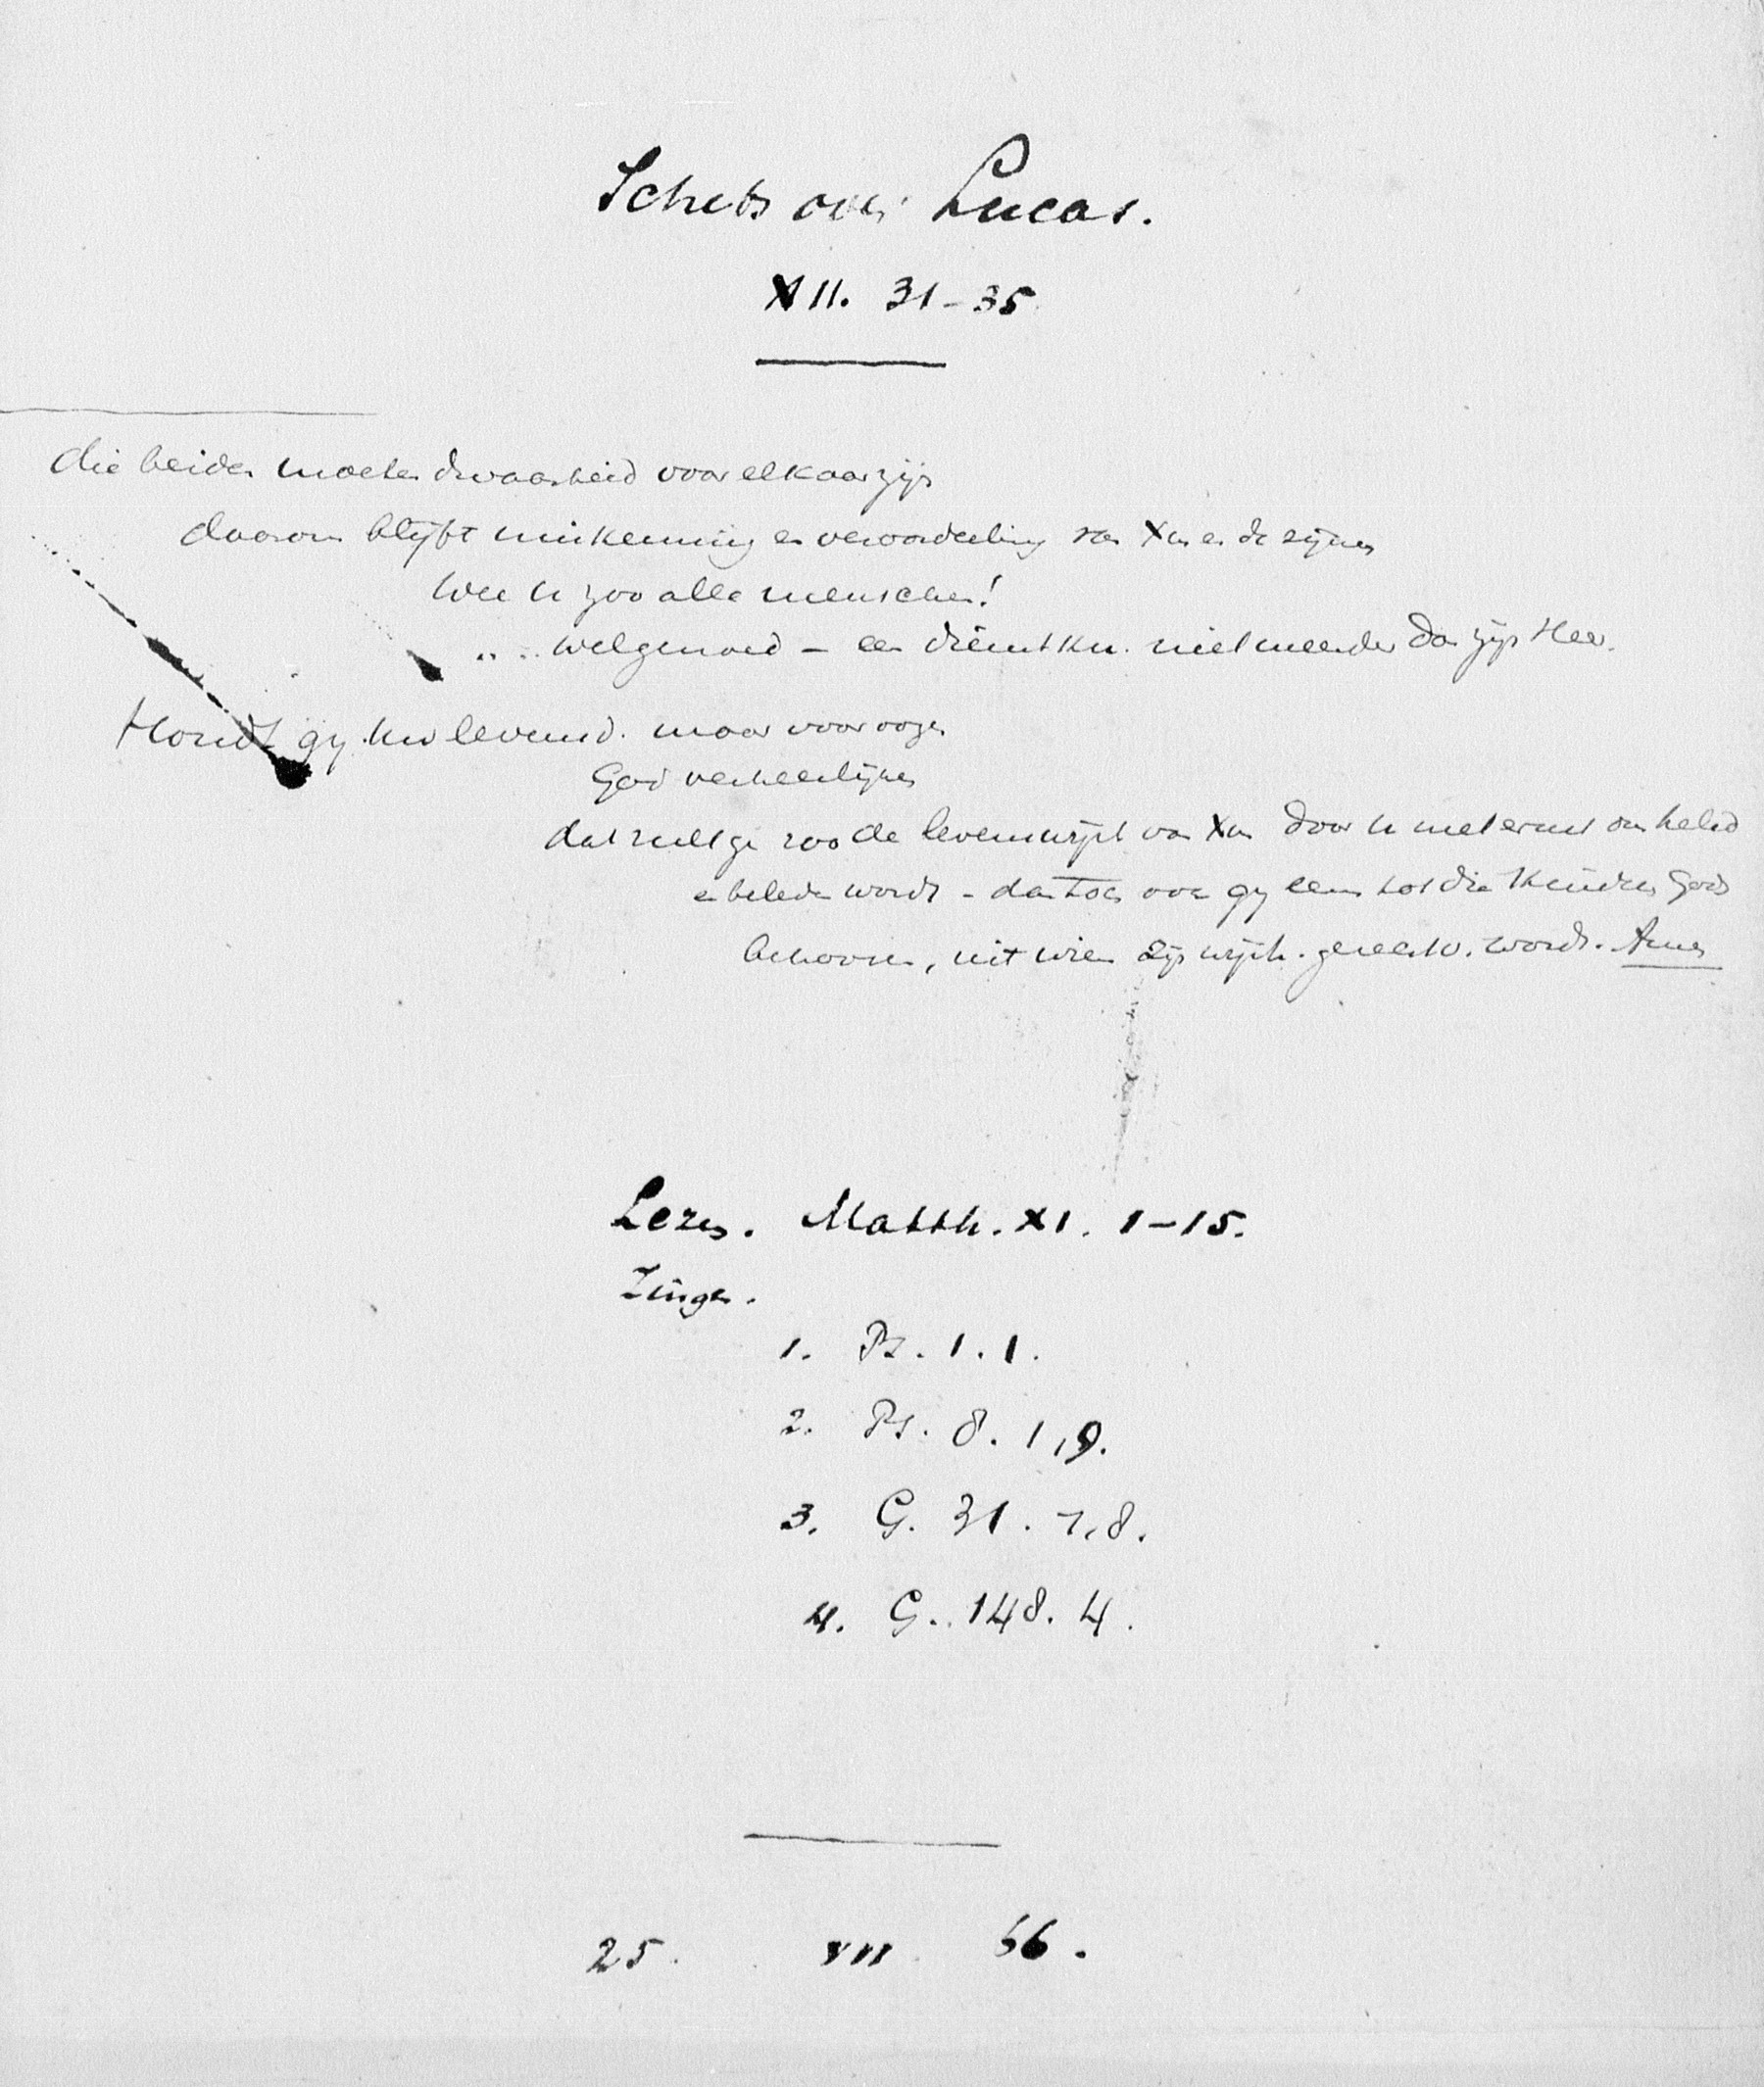 Schets over Lucas.
XII. 31-35
die beiden moeten dwaasheid voor elkaar zijn
daarom blijft miskenning en veroordeeling van Xus en de zijnen
Wee u zoo alle menschen!
„ .. welgemoed – een dienstkn. niet meerder dan zijn Heer.
Houdt gy uw levensd. maar voor oogen
God verheerlijken
dat zult ge zoo de levenswijsh van Xus door u met ernst
en beleden wordt – dan toch ook gy eens tot die kinderen Gods
behooren, uit wien zijn wijsh. gerechtv. wordt. Amen
Lezen. Matth. XI. 1-15.
Zingen.
1. Ps. 1. 1.
2. Ps. 8. 1,9.
3. G. 31. 7,8.
4. G. 148. 4.
25. VII 56.